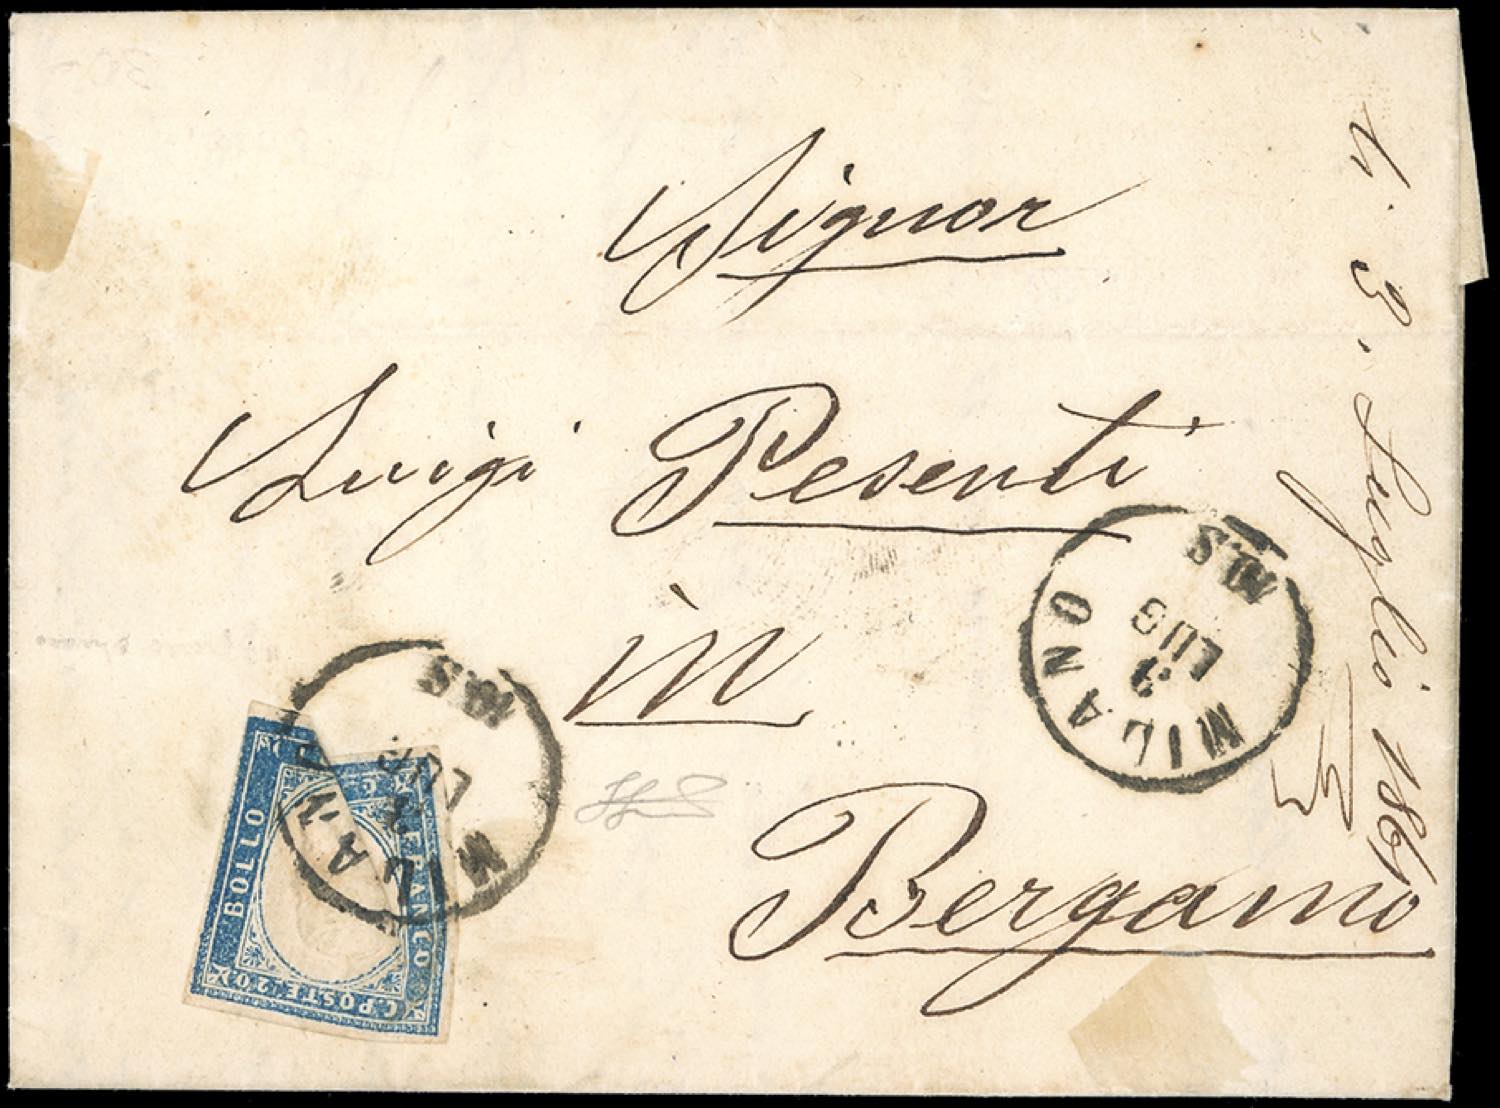 Signor
Luigi Pesenti
in
Bergamo
3. Luglio 1860
MILANO
3
LUG
M.S
MILANO
LUG
M.S
BOLLO
FRANCO
C. POSTE 20